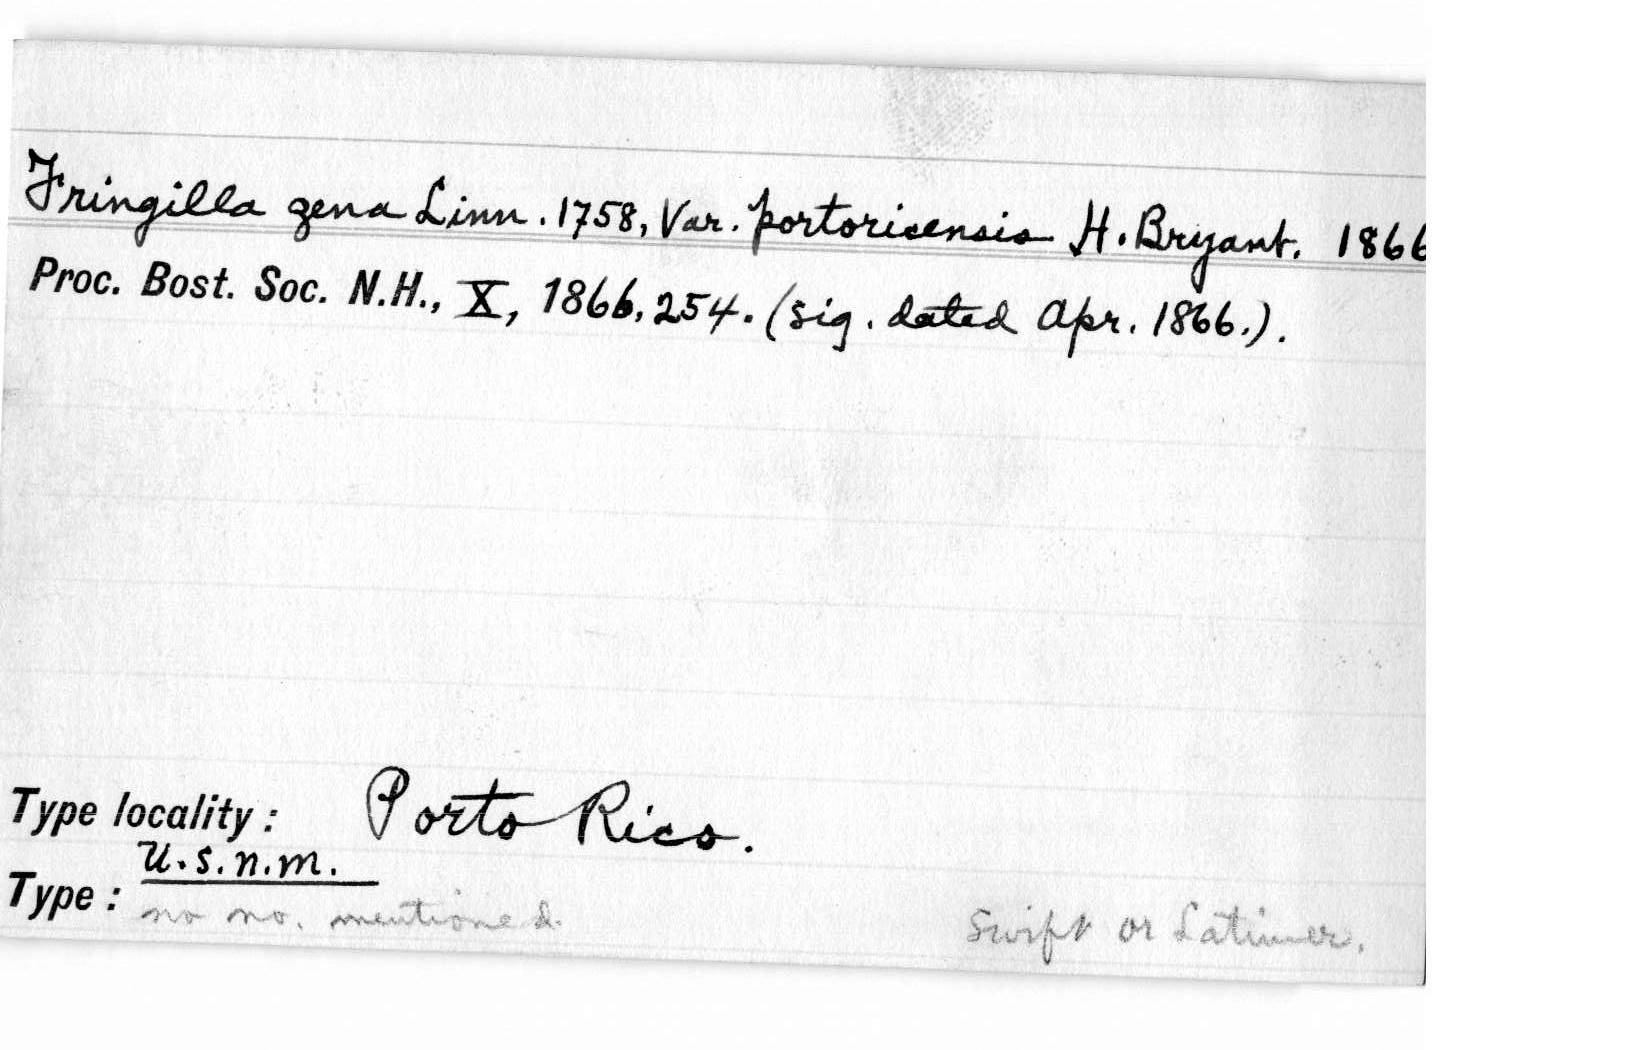 Fringilla zena Linn. 1758, Var. portoricensis H. Bryant. 1866
Proc. Bost. Soc. N.H., X, 1866, 254. (sig. dated Apr. 1866.).
Type locality: Porto Rico.
U.S.N.M.
Type: no no. mentioned. Swift or Latimer.